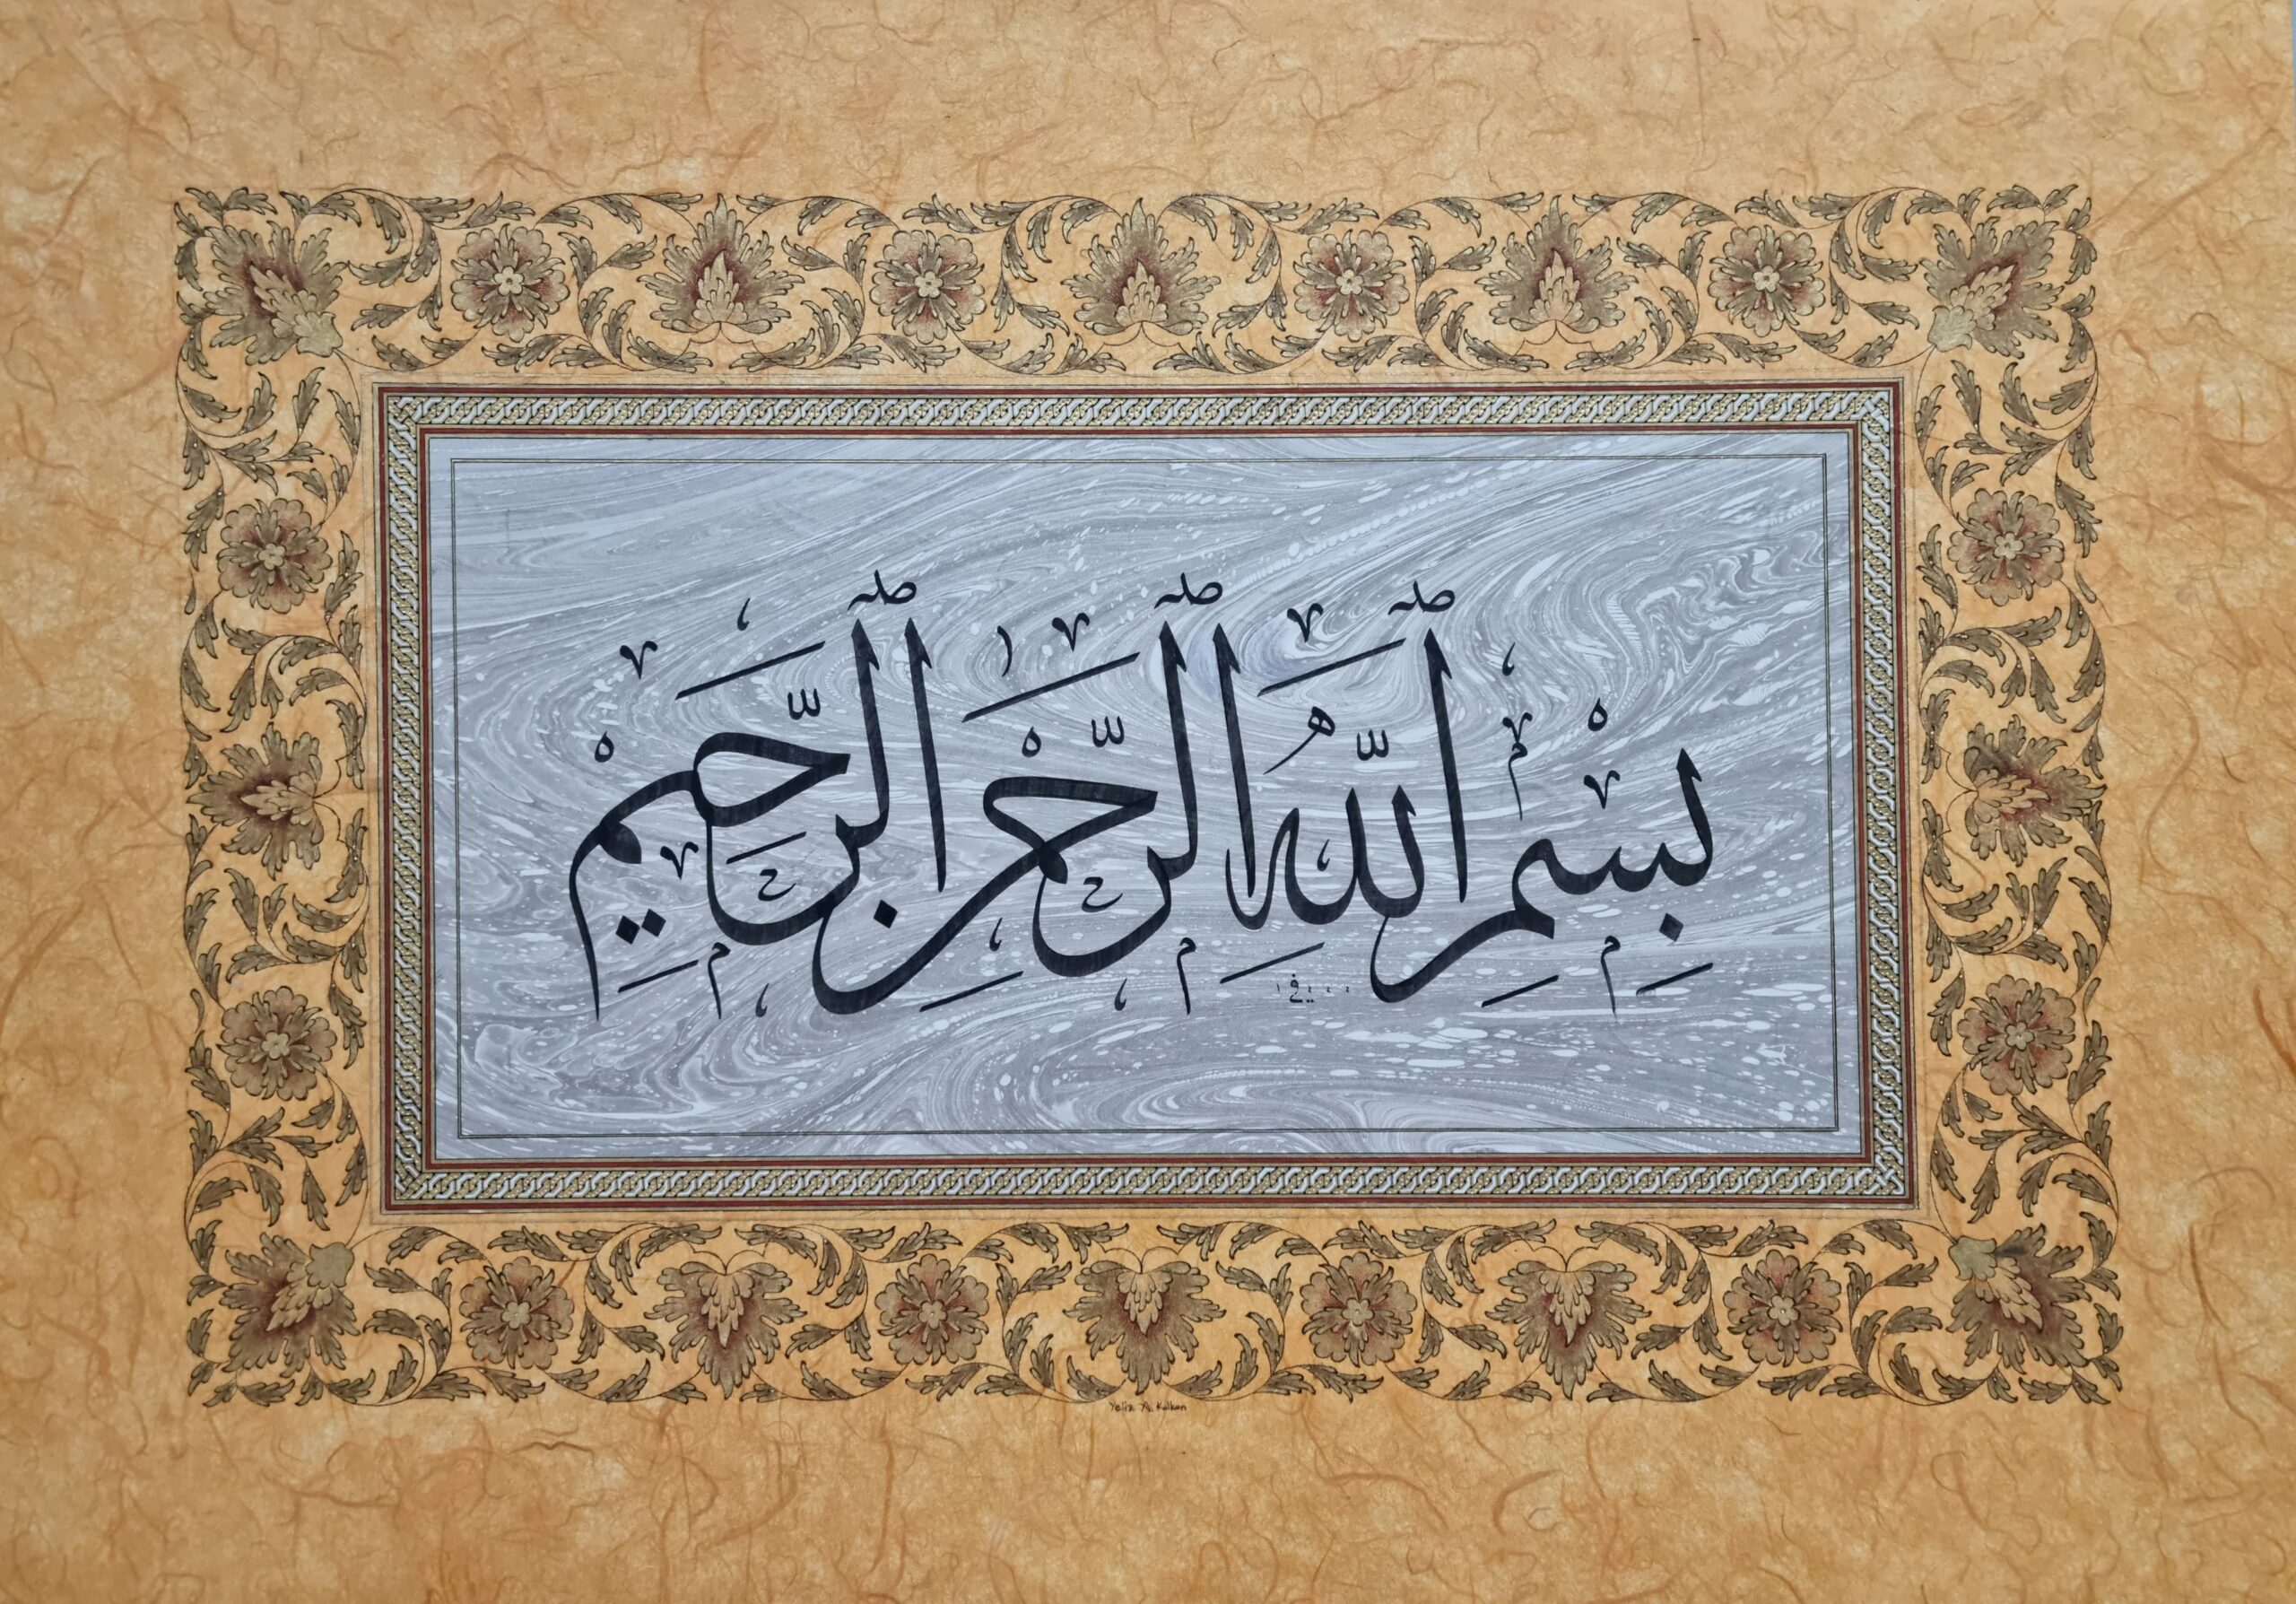 بِسْمِ اللّٰهِ الرَّحْمٰنِ الرَّحِيمِ
Yeliz A. Kalkan